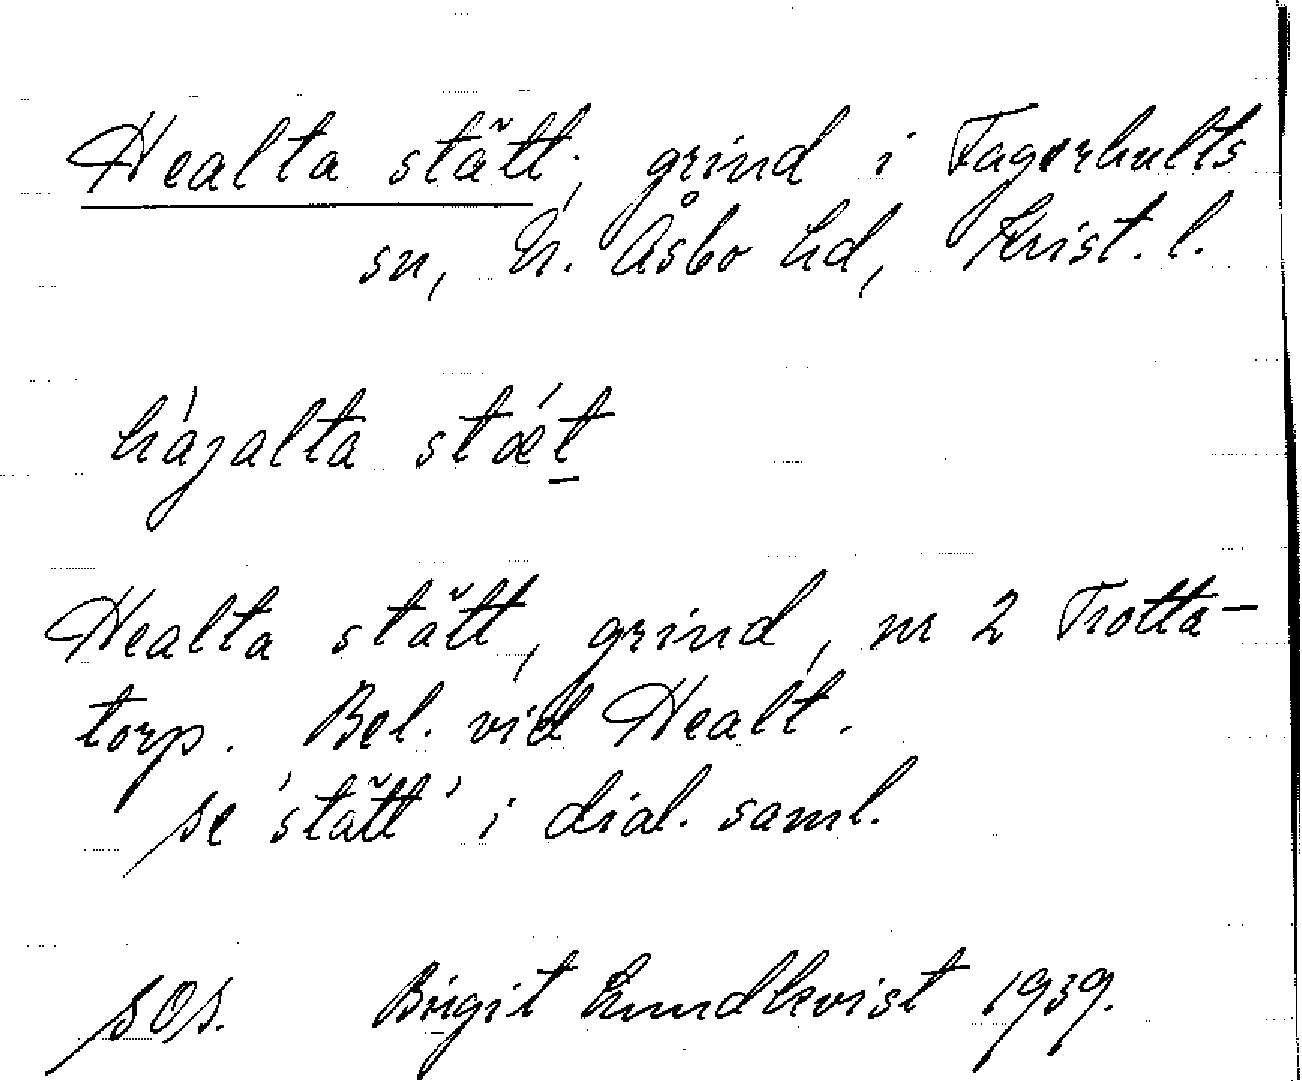 Healta stätt, grind i Fagerhults
sn, N. Åsbo hd, Krist. l.
hájalta stǽt
Healta stätt, grind, m 2 Trotta-
torp. Bel. vid Healt.
se 'stätt' i dial. saml.
SOS. Birgit Lundkvist 1939.